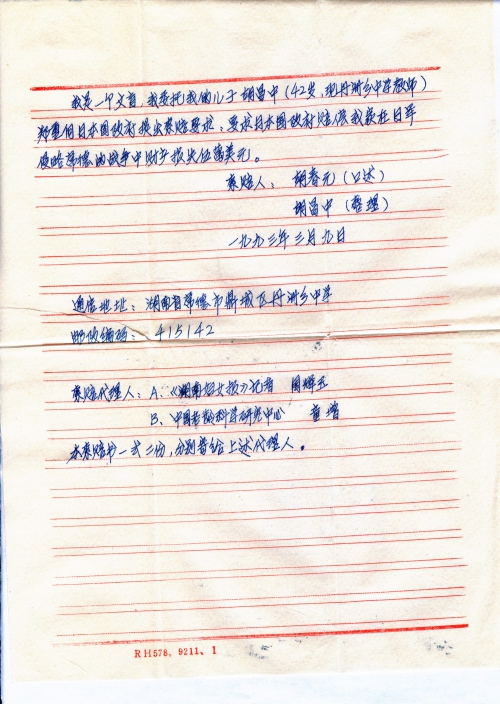 我是一个文盲,我委托我的儿子胡昌中(42岁,现丹洲乡中学教师)
郑重向日本国政府提出索赔要求:要求日本国政府赔偿我家在日军
侵略常德的战争中财产损失伍萬美元。
索赔人:胡春元(口述)
胡昌中(整理)
一九九三年三月九日
通信地址:湖南省常德市鼎城区丹洲乡中学
邮政编码:415142
索赔代理人:A、《湖南妇女报》记者 周辉
B、中国老龄科学研究中心 童增
本索赔书一式二份,分别寄给上述代理人。
RH578.9211.1